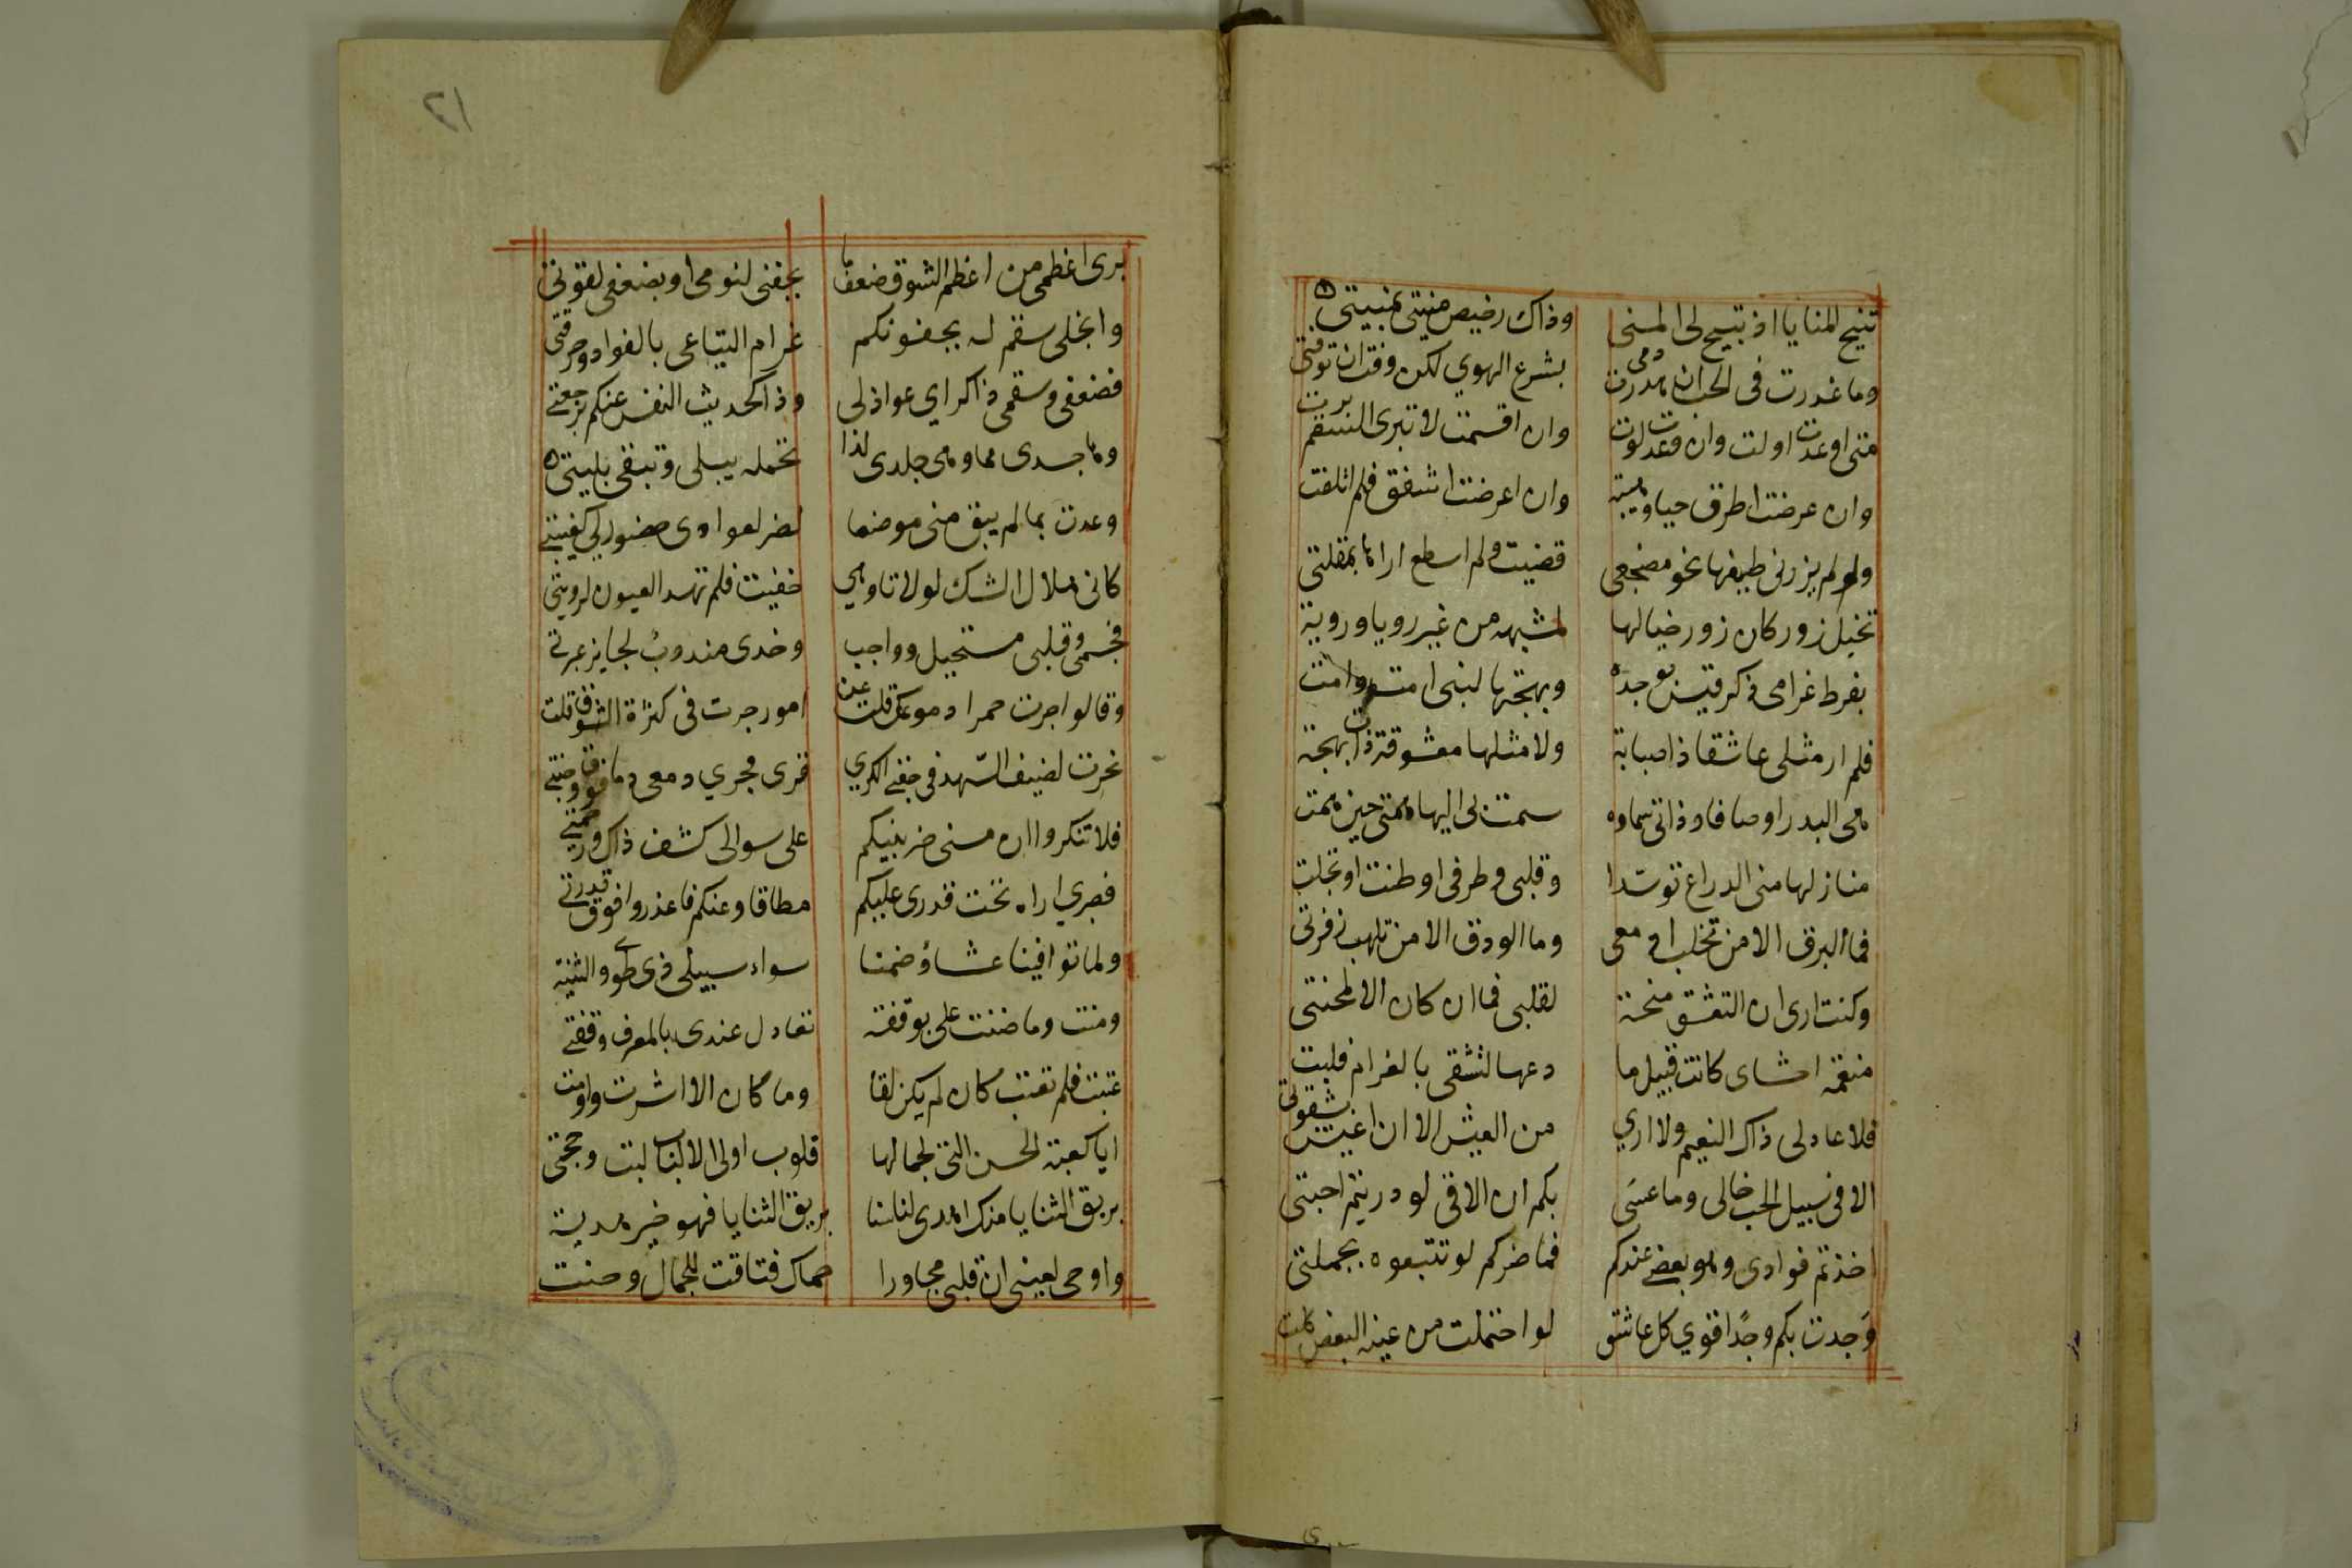 تتيح المنايا اذ تبيح لى المنى وذاك رخيص منيتى بمنيتى
وما غدرت فى الحب ان هدرت دمى بشرع الهوي لكن وفت ان توفتى
متى اوعدت اولت وان وعدت لوت وان اقسمت لا تبرى السقم برت
وان عرضت اطرق حيا وهيبة وان اعرضت اشفق فلم اتلفت
ولو لم يزرنى طيفها نحو مضجعى قضيت ولم اسطع اراها بمقلتى
تخيل زور كان زور خيالها لمشبهه من غير رويا وروية
بفرط غرامى ذكر قيس بوجده وبهجتها لبنى امت وامت
فلم ار مثلى عاشقا ذا صبابة ولا مثلها معشوقة ذات بهجة
هى البدر اوصافا وذاتى سماوه سمت بى اليها همتى حين همت
منازلها منى الذراع توسدا وقلبى وطرفى اوطنت او تجلت
فما البرق الا من تحلب ادمعى وما الودق الا من تلهب زفرتى
وكنت ارى ان التعشق منحة لقلبى فما ان كان الا لمحنتى
منعمة احشاى كانت قبيل ما دعها لتشقى بالغرام فلبت
فلا عاد لى ذاك النعيم ولا اري من العيش الا ان اعيش بشقوتى
الا فى سبيل الحب حالى وما عسى بكم ان الاقى لو دريتم احبتى
اخذتم فوادى وهو بعضى عندكم فما ضركم لو تتبعوه بجملتى
وجدت بكم وجدا قوي كل عاشق لو احتملت من عبئه البعض كلت
٢١
برى اعظمى من اعظم الشوق ضعف ما بجفنى لنومى او بضعفى لقوتى
وانحلى سقم له بجفونكم غرام التياعى بالفواد وحرقتى
فضعفى وسقمى ذا كراي عواذلى وذا كحديث النفس عنكم برجعتى
وها جسدى مما وهى جلدى لذا تحمله يبلى وتبقى بليتى
وعدت بما لم يبق منى موضعا لضر لعوادى حضورى كغيبتى
كانى هلال الشك لولا تاوهي خفيت فلم تهد العيون لرويتى
فجسمى وقلبى مستحيل وواجب وخدى مندوب لجايز عبرتى
وقالوا جرت حمرا دموعك قلت عن امور جرت فى كثرة الشوق قلت
نحرت لضيف السهد فى جفنى الكري قرى فجري دمعى دما فوق وجنتى
فلا تنكروا ان مسنى ضر بينكم على سوالى كشف ذاك ورحمتى
فصبري اراه تحت قدرى عليكم مطاقا وعنكم فاعذروا فوق قدرتى
ولما توافينا عشاؤ ضمنا سواء سبيلى ذى طوى والثنية
ومنت وما ضنت على بوقفة تعادل عندى بالمعرف وقفتى
عتبت فلم تعتب كان لم يكن لقا وما كان الا اشرت واومت
ايا كعبة الحسن التى لجمالها قلوب اولى الالباب لبت وحجتى
بريق الثنايا منك اهدى لنا سنا بريق الثنايا فهو خير هدية
واوحى لعينى ان قلبى مجاورا حماك فتاقت للجمال وحنت